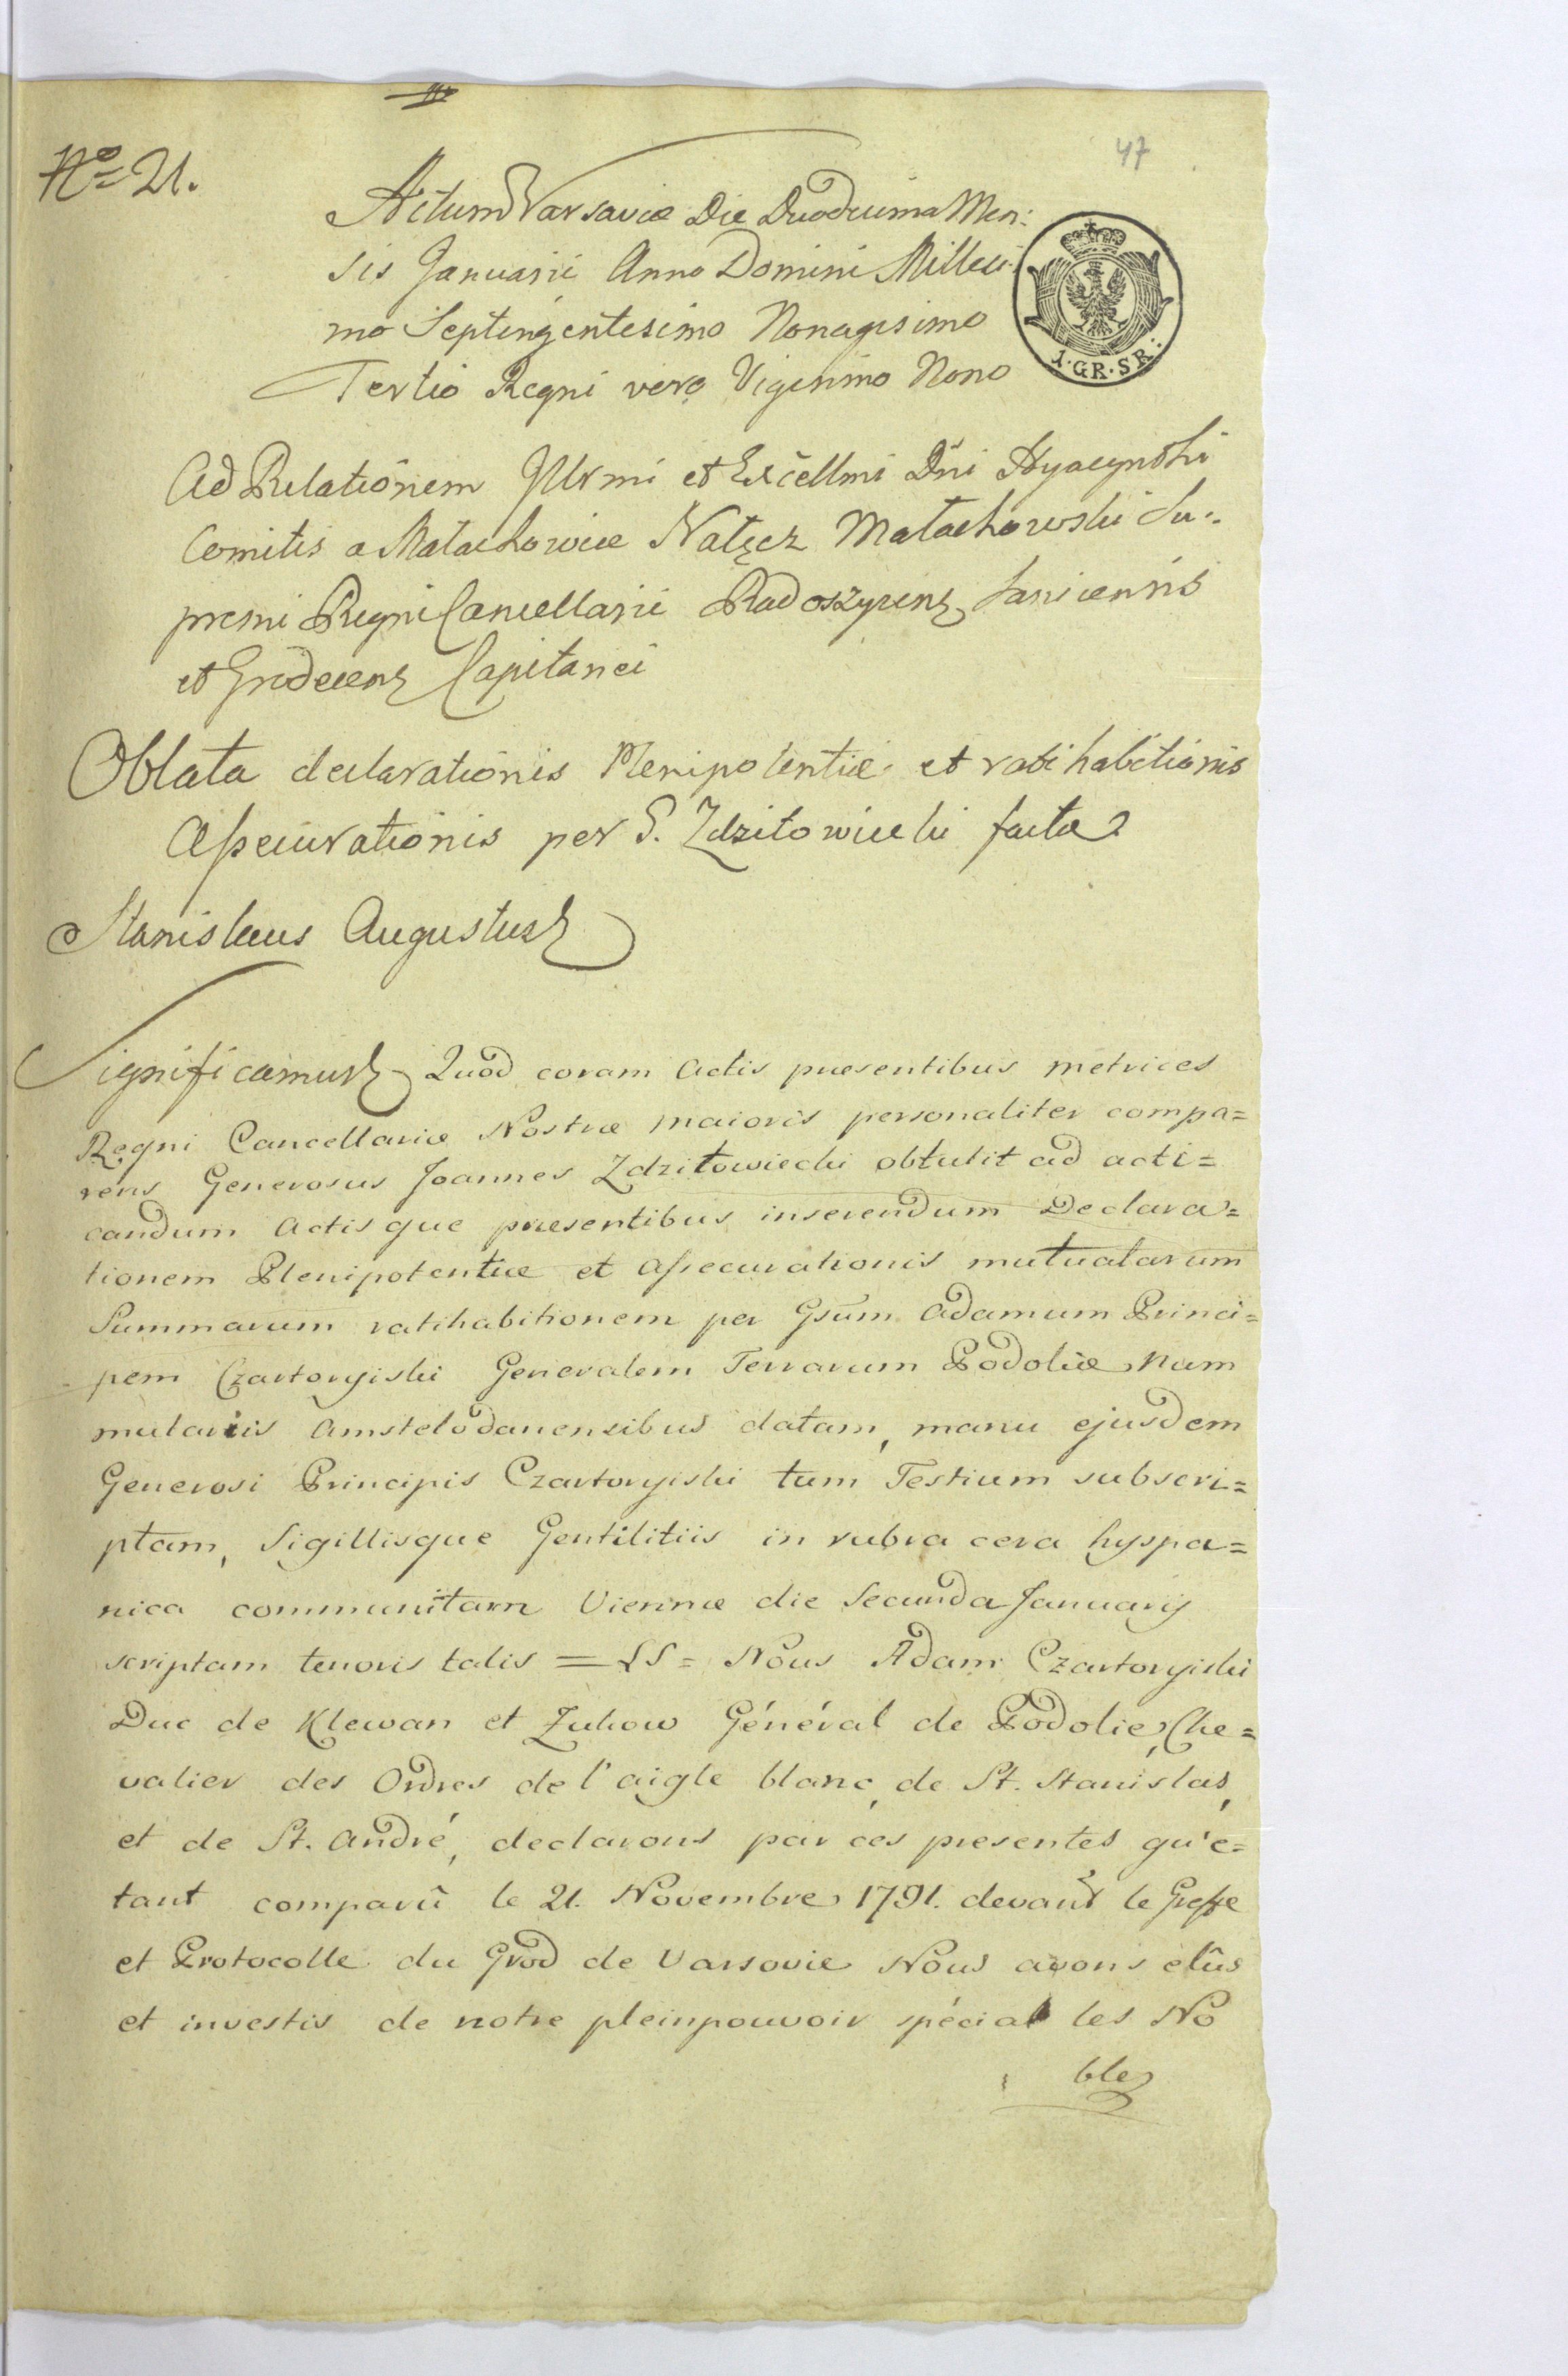 47
Nº 21.
Actum Varsaviæ Die Duodecima Men:
sis Januarii Anno Domini Millesi:
mo Septingentesimo Nonagesimo
Tertio Regni vero Vigesimo Nono
1.GR.SR.
Ad Relationem Illrmi et Excellmi Dni Hyacynthi
Comitis a Małachowice Nałęcz Małachowski Su:
premi Regni Cancellarii Radoszycens
et Grodecens Capitanei
Oblata declarationis Plenipotentiæ et ratihabitionis
Assecurationis per G. Zdzitowiecki facta
Stanislaus Augustus
Significamus Quod coram Actis præsentibus metrices
Regni Cancellariæ Nostræ maioris personaliter compa=
rens Generosus Joannes Zdzitowiecki obtulit ad acti=
candum Actisque præsentibus inserendum Declara=
tionem Plenipotentiæ et Assecurationis mutuatarum
Summarum ratihabitionem per Gsum Adamum Princi=
pem Czartoryiski Generalem Terrarum Podoliæ Num
mulariis Amstelodanensibus datam, manu ejusdem
Generosi Principis Czartoryiski tum Testium subscri=
ptam, Sigillisque Gentilitiis in rubra cera hyspa=
nica communitam Viennæ die Secunda Januarij
scriptam tenoris talis = LS = Nous Adam Czartoryiski
Duc de Klewan et Zukow Général de Podolie, Che=
valier des Ordres de l'aigle blanc, de St. Stanislas,
et de St. André, declarons par ces presentes qu'e=
tant comparû le 21. Novembre 1791. devant le Greffe
et Protocolle du Grod de Varsovie Nous avons elûs
et investis de notre pleinpouvoir spécial les No
bles